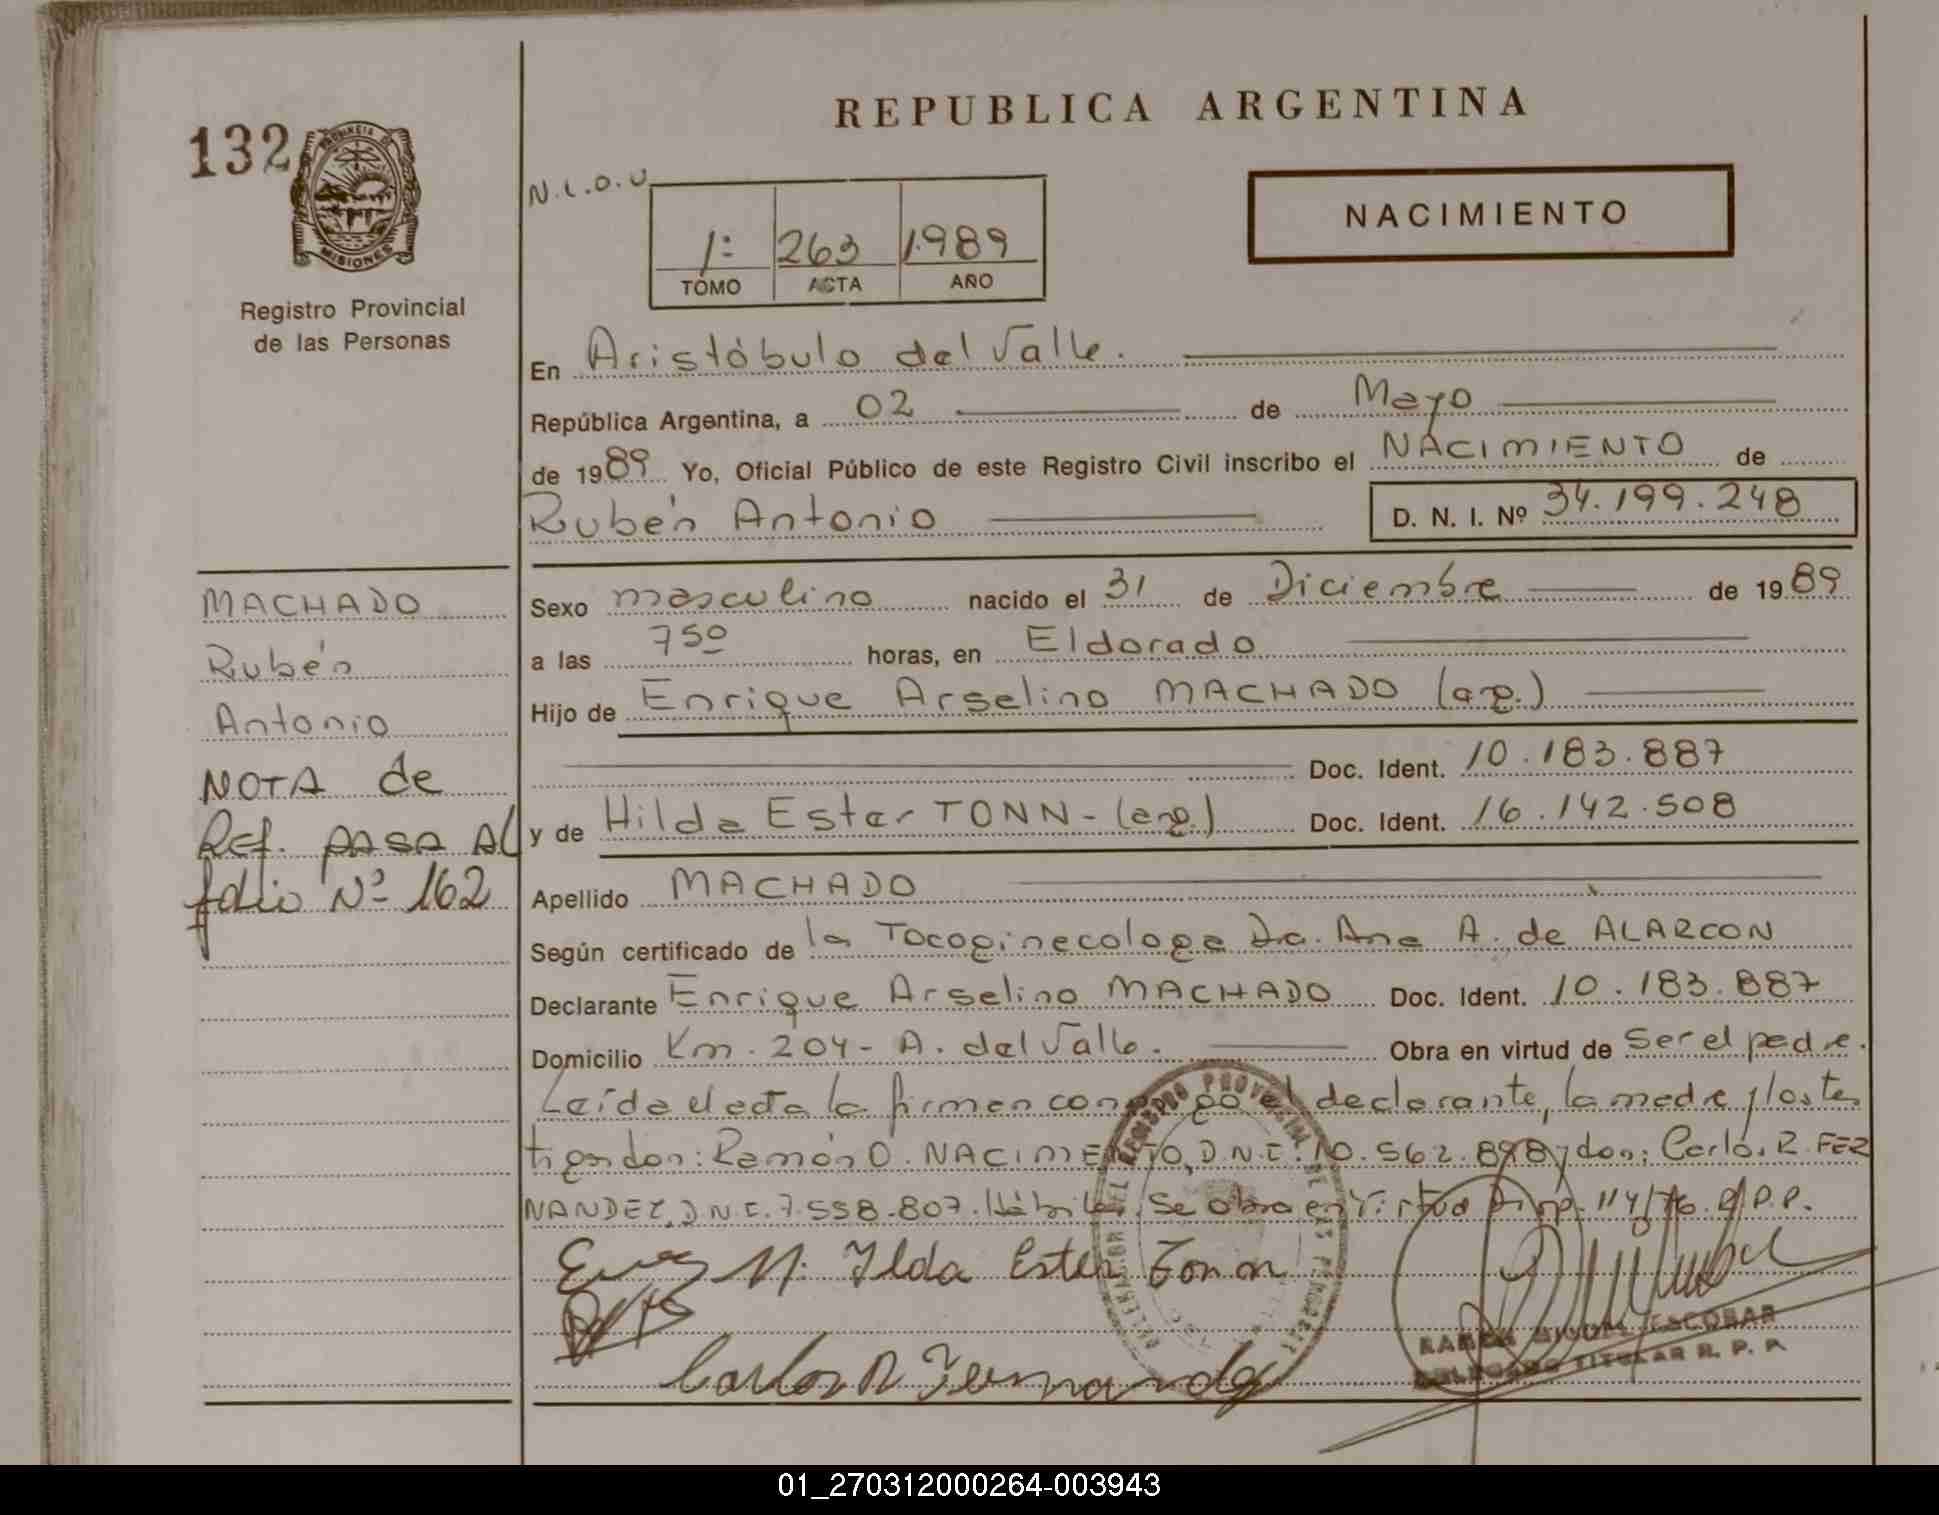 REPUBLICA ARGENTINA
132
PROVINCIA DE
MISIONES
Registro Provincial
de las Personas
N.L.O.U
1º 263 1989
TOMO ACTA AÑO
NACIMIENTO
En Aristóbulo del Valle.
República Argentina, a 02 de Mayo
de 1989 Yo, Oficial Público de este Registro Civil inscribo el NACIMIENTO de
Rubén Antonio D. N. I. Nº 34.199.248
MACHADO
Rubén
Antonio
NOTA de
Ref. PASA AL
folio Nº 162
Sexo masculino nacido el 31 de Diciembre de 1989
a las 750 horas, en Eldorado
Hijo de Enrique Arselino MACHADO (arg.)
Doc. Ident. 10.183.887
y de Hilda Ester TONN - (arg.) Doc. Ident. 16.142.508
Apellido MACHADO
Según certificado de la Tocoginecologa Dra. Ana A. de ALARCON
Declarante Enrique Arselino MACHADO Doc. Ident. 10.183.887
Domicilio Km. 204 - A. del Valle. Obra en virtud de ser el padre.
Leída el acta la firman conmigo el declarante, la madre y los tes
tigos don: Ramón O. NACIMIENTO, D.N.I. 10.562.898 y don: Carlos R. FER
NANDEZ, D.N.I. 7.558.807. Hábiles. Se obra en virtud Disp. 114/76. R.P.P.
M. Ilda Ester Tonn
Carlos R Fernandez
RAMON MIGUEL ESCOBAR
DELEGADO TITULAR R. P. P.
01_270312000264-003943